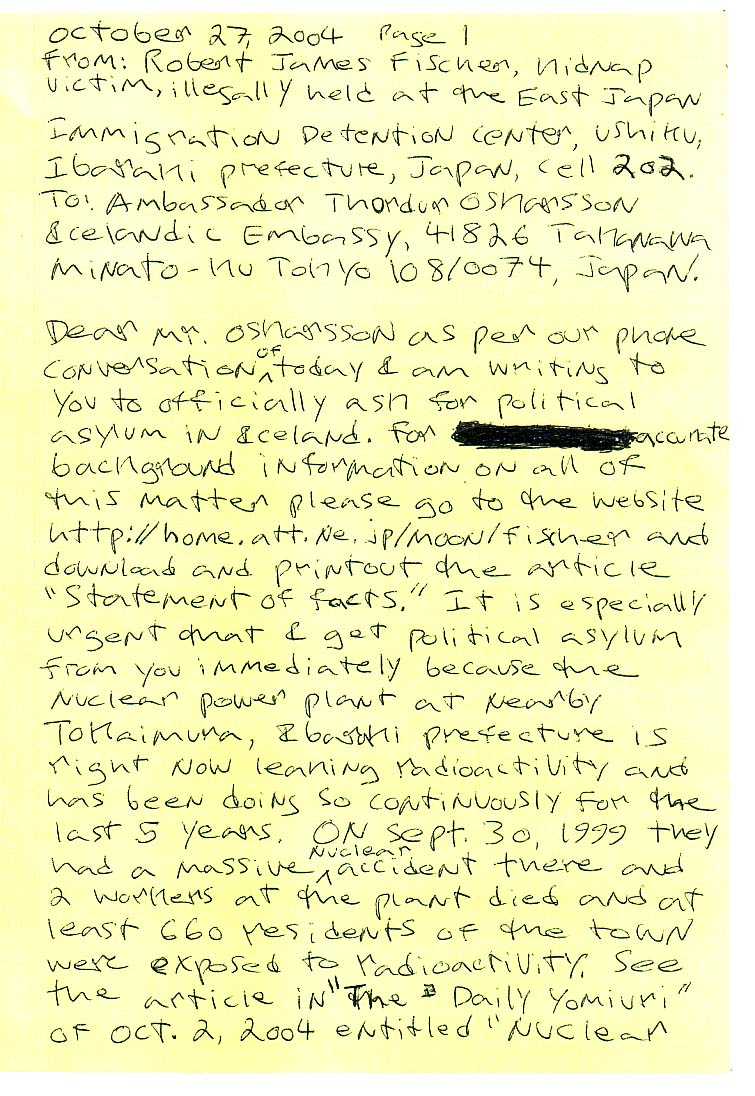 October 27, 2004 Page 1
From: Robert James Fischer, kidnap
victim, illegally held at the East Japan
Immigration Detention center, Ushiku,
Ibaraki prefecture, Japan, cell 202.
To: Ambassador Thordur Oskarsson
Icelandic Embassy, 41826 Takanawa
Minato-ku Tokyo 108/0074, Japan.
Dear Mr. Oskarsson as per our phone
conversation of today I am writing to
you to officially ask for political
asylum in Iceland. For accurate
background information on all of
this matter please go to the website
http://home.att.ne.jp/moon/fischer and
download and printout the article
"Statement of facts." It is especially
urgent that I get political asylum
from you immediately because the
nuclear power plant at nearby
Tokaimura, Ibaraki prefecture is
right now leaking radioactivity and
has been doing so continuously for the
last 5 years. On Sept. 30, 1999 they
had a massive nuclear accident there and
2 workers at the plant died and at
least 660 residents of the town
were exposed to radioactivity. See
the article in "The Daily Yomiuri"
of Oct. 2, 2004 entitled "Nuclear